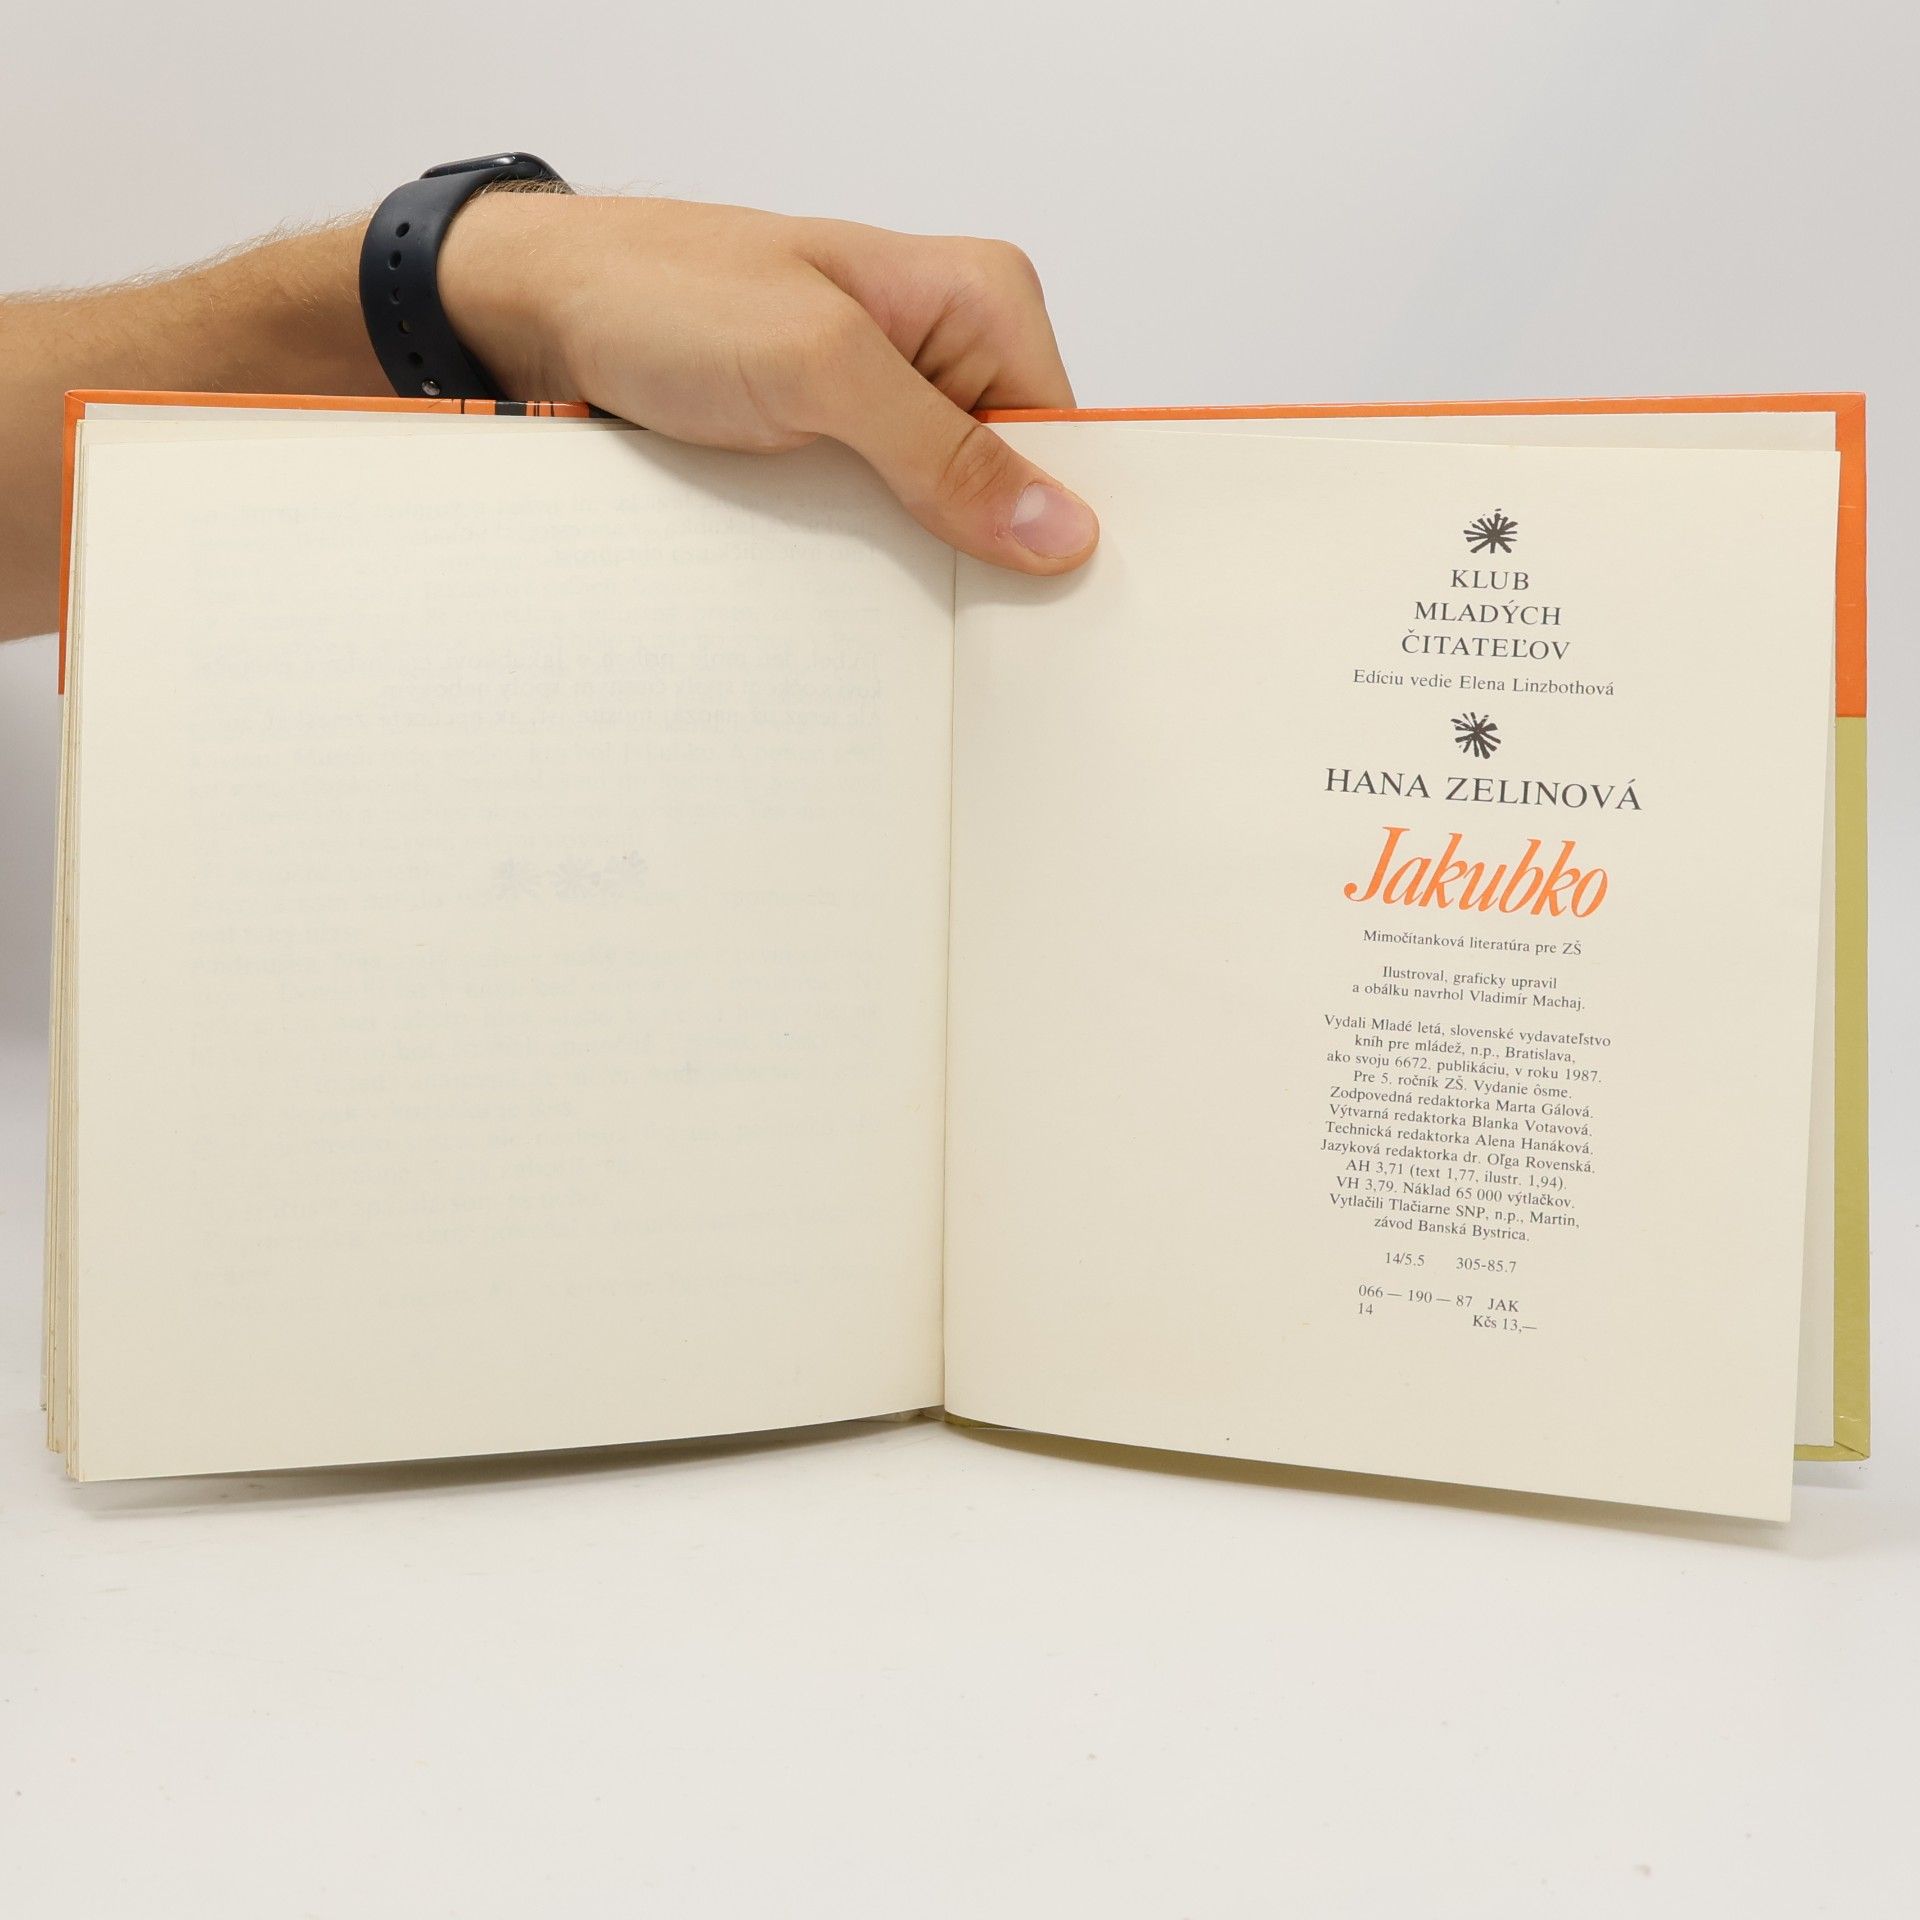 KLUB
MLADÝCH
ČITATEĽOV
Edíciu vedie Elena Linzbothová
HANA ZELINOVÁ
Jakubko
Mimočítanková literatúra pre ZŠ
Ilustroval, graficky upravil
a obálku navrhol Vladimír Machaj.
Vydali Mladé letá, slovenské vydavateľstvo
kníh pre mládež, n.p., Bratislava,
ako svoju 6672. publikáciu, v roku 1987.
Pre 5. ročník ZŠ. Vydanie ôsme.
Zodpovedná redaktorka Marta Gálová.
Výtvarná redaktorka Blanka Votavová.
Technická redaktorka Alena Hanáková.
Jazyková redaktorka dr. Oľga Rovenská.
AH 3,71 (text 1,77, ilustr. 1,94).
VH 3,79. Náklad 65 000 výtlačkov.
Vytlačili Tlačiarne SNP, n.p., Martin,
závod Banská Bystrica.
14/5.5 305-85.7
066 — 190 — 87 JAK
14 Kčs 13,—